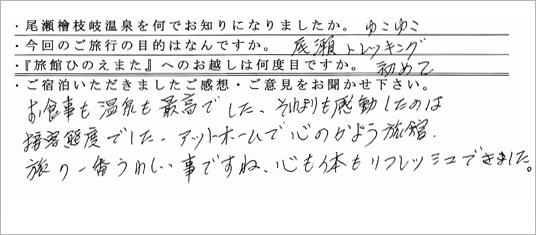 ・尾瀬檜枝岐温泉を何でお知りになりましたか。 ゆこゆこ
・今回のご旅行の目的はなんですか。 尾瀬トレッキング
・『旅館ひのえまた』へのお越しは何度目ですか。 初めて
・ご宿泊いただきましたご感想・ご意見をお聞かせ下さい。
お食事も温泉も最高でした、それよりも感動したのは
接客態度でした。アットホームで心のかよう旅館、
旅の一番うれしい事ですね、心も体もリフレッシュできました。